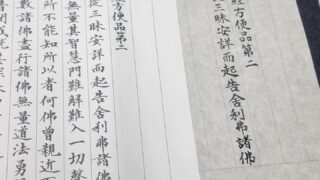 經方便品第二
三昧安詳而起告舍利弗諸佛
方便品第二
從三昧安詳而起告舍利弗諸佛
無量其智慧門難解難入一切聲
所不能知所以者何佛曾親近
數諸佛盡行諸佛無量道法勇
聞成就甚深未